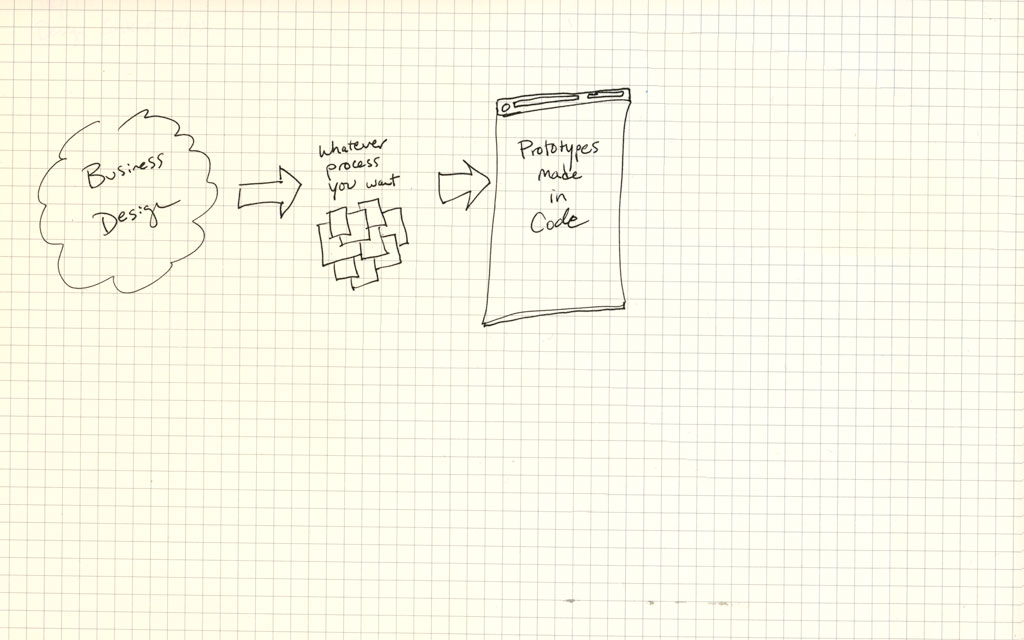 Business
Design
Whatever
process
you want
Prototypes
made
in
Code